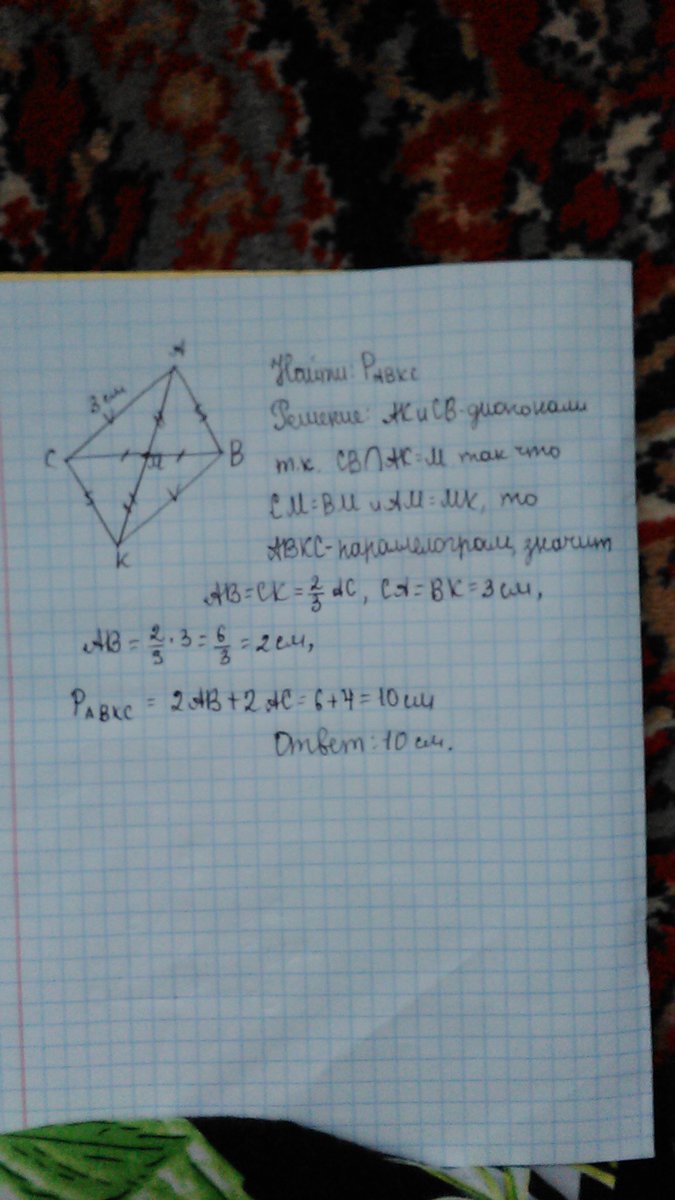 A
3 см
C
M
B
K
Найти: PABKC
Решение: AK и CB-диогонали
т.к. CB∩AK=M так что
CM=BM и AM=MK, то
ABKC-параллелограм, значит
AB=CK=2/3 AC, CA=BK=3 см,
AB = 2/3 · 3 = 6/3 = 2 см,
PABKC = 2AB+2AC=6+4=10 см
Ответ: 10 см.